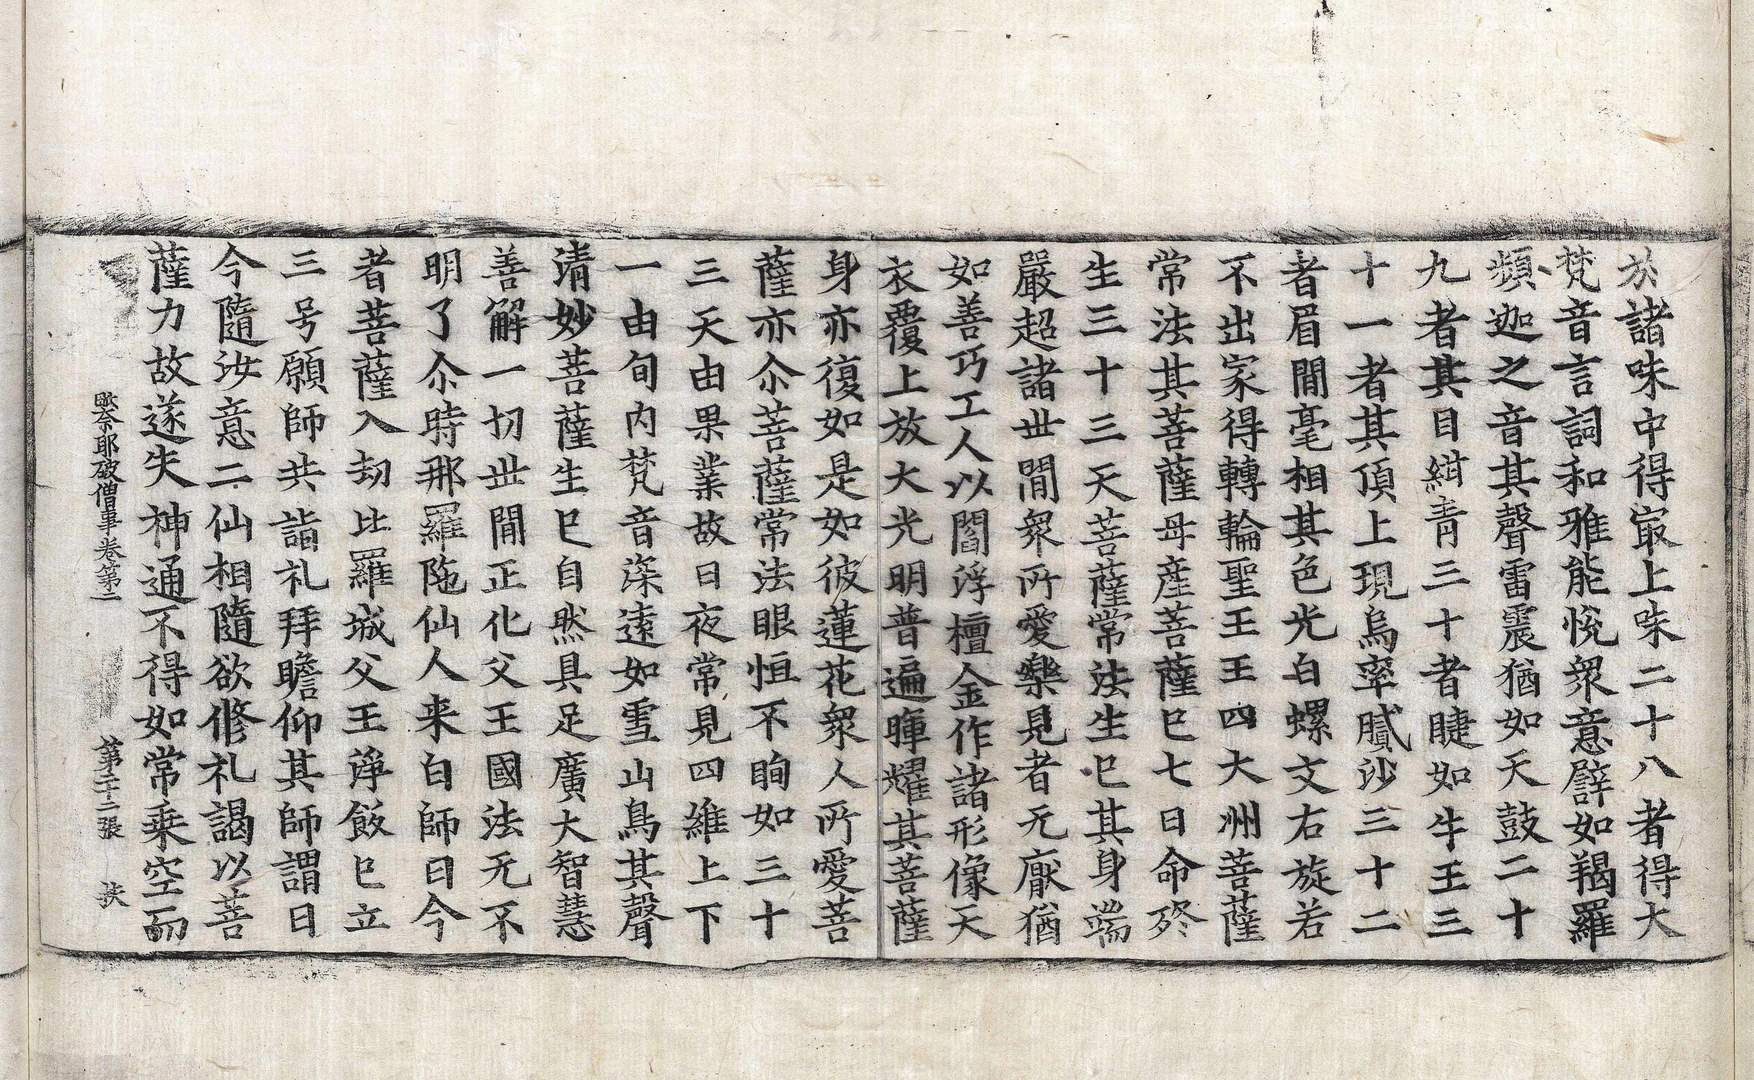 於諸味中得㝡上味二十八者得大
梵音言詞和雅能悅衆意譬如羯羅
頻迦之音其聲雷震猶如天鼓二十
九者其目紺青三十者睫如牛王三
十一者其頂上現烏率膩沙三十二
者眉間毫相其色光白螺文右旋若
不出家得轉輪聖王王四大州菩薩
常法其菩薩母產菩薩已七日命終
生三十三天菩薩常法生已其身端
嚴超諸世間衆所愛樂見者无猒猶
如善巧工人以閻浮檀金作諸形像天
衣覆上放大光明普遍暉耀其菩薩
身亦復如是如彼蓮花衆人所愛菩
薩亦尒菩薩常法眼恒不眴如三十
三天由果業故日夜常見四維上下
一由旬內梵音深遠如雪山鳥其聲
清妙菩薩生已自然具足廣大智慧
善解一切世間正化父王國法无不
明了尒時那羅陁仙人来白師曰今
者菩薩入劫比羅城父王淨飯已立
三号願師共詣礼拜瞻仰其師謂曰
今隨汝意二仙相隨欲修礼謁以菩
薩力故遂失神通不得如常乗空而
毗奈耶破僧事卷第二 第二十二張 扶